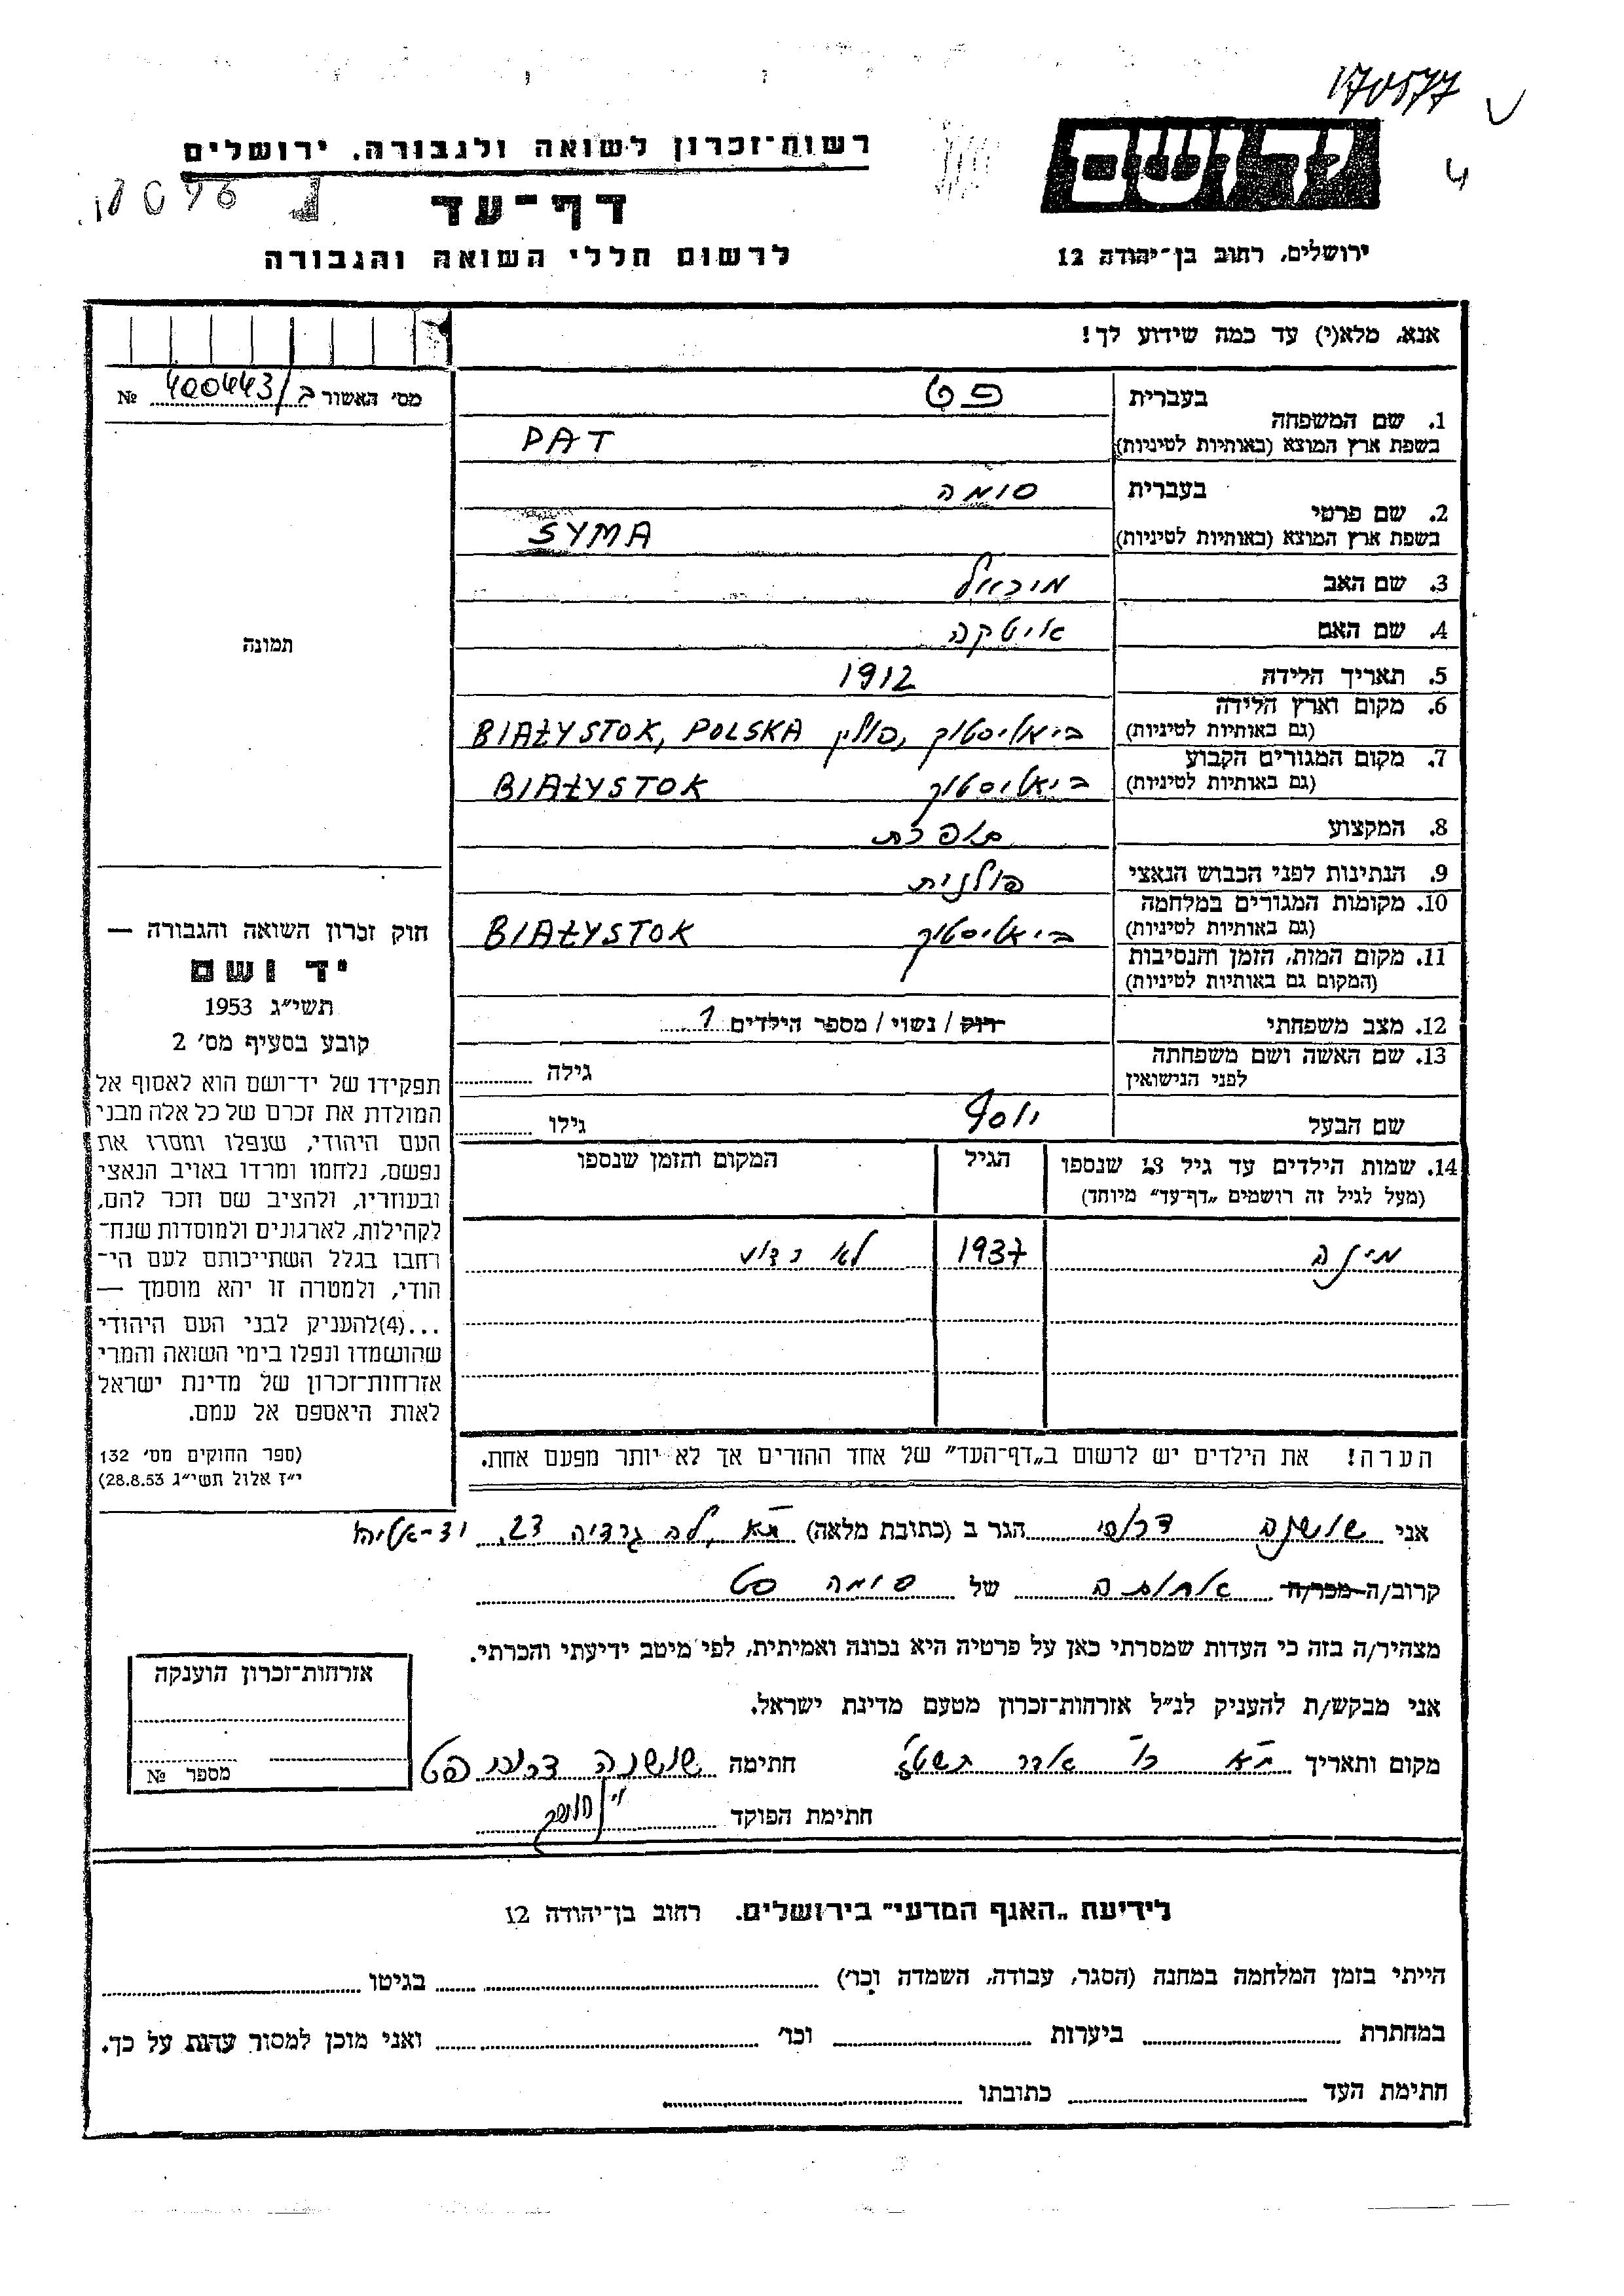 170577
רשות־זכרון לשואה ולגבורה, ירושלים
דף־עד
לרשום חללי השואה והגבורה
ירושלים, רחוב בן־יהודה 12
אנא, מלא(י) עד כמה שידוע לך!
מס׳ האשור 400443/ב №
בעברית פט
1. שם המשפחה
בשפת ארץ המוצא (באותיות לטיניות) PAT
בעברית סומה
2. שם פרטי
בשפת ארץ המוצא (באותיות לטיניות) SYMA
3. שם האב מיכאל
4. שם האם איטקה
5. תאריך הלידה 1912
6. מקום וארץ הלידה
(גם באותיות לטיניות) ביאליסטוק, פולין BIAŁYSTOK, POLSKA
7. מקום המגורים הקבוע
(גם באותיות לטיניות) ביאליסטוק BIAŁYSTOK
8. המקצוע תופרת
9. הנתינות לפני הכבוש הנאצי פולנית
10. מקומות המגורים במלחמה
(גם באותיות לטיניות) ביאליסטוק BIAŁYSTOK
11. מקום המות, הזמן והנסיבות
(המקום גם באותיות לטיניות)
12. מצב משפחתי רוק / נשוי / מספר הילדים 1
13. שם האשה ושם משפחתה
לפני הנישואין גילה
שם הבעל יוסף גילו
14. שמות הילדים עד גיל 13 שנספו הגיל המקום והזמן שנספו
(מעל לגיל זה רושמים „דף־עד” מיוחד)
1937 לא ידוע
תמונה
חוק זכרון השואה והגבורה —
יד ושם
תשי״ג 1953
קובע בסעיף מס׳ 2
תפקידו של יד־ושם הוא לאסוף אל
המולדת את זכרם של כל אלה מבני
העם היהודי, שנפלו ומסרו את
נפשם, נלחמו ומרדו באויב הנאצי
ובעוזריו, ולהציב שם וזכר להם,
לקהילות, לארגונים ולמוסדות שנח־
רחבו בגלל השתייכותם לעם הי־
הודי, ולמטרה זו יהא מוסמך —
...(4)להעניק לבני העם היהודי
שהושמדו ונפלו בימי השואה והמרי
אזרחות־זכרון של מדינת ישראל
לאות היאספם אל עמם.
(ספר החוקים מס׳ 132
י״ז אלול תשי״ג 28.8.53)
הערה! את הילדים יש לרשום ב„דף־העד” של אחד ההורים אך לא יותר מפעם אחת.
אני שושנה הגר ב (כתובת מלאה) ת״א, 23, יד־אליהו
קרוב/ה מכר/ה אחותה של סומה פט
מצהיר/ה בזה כי העדות שמסרתי כאן על פרטיה היא נכונה ואמיתית, לפי מיטב ידיעתי והכרתי.
אני מבקש/ת להעניק לנ״ל אזרחות־זכרון מטעם מדינת ישראל.
מקום ותאריך ת״א אדר חתימה שושנה פט
חתימת הפוקד
אזרחות־זכרון הוענקה
מספר №
לידיעת „האגף המדעי” בירושלים. רחוב בן־יהודה 12
הייתי בזמן המלחמה במחנה (הסגר, עבודה, השמדה וכו׳) בגיטו
במחתרת ביערות וכו׳ ואני מוכן למסור עדות על כך.
חתימת העד כתובתו